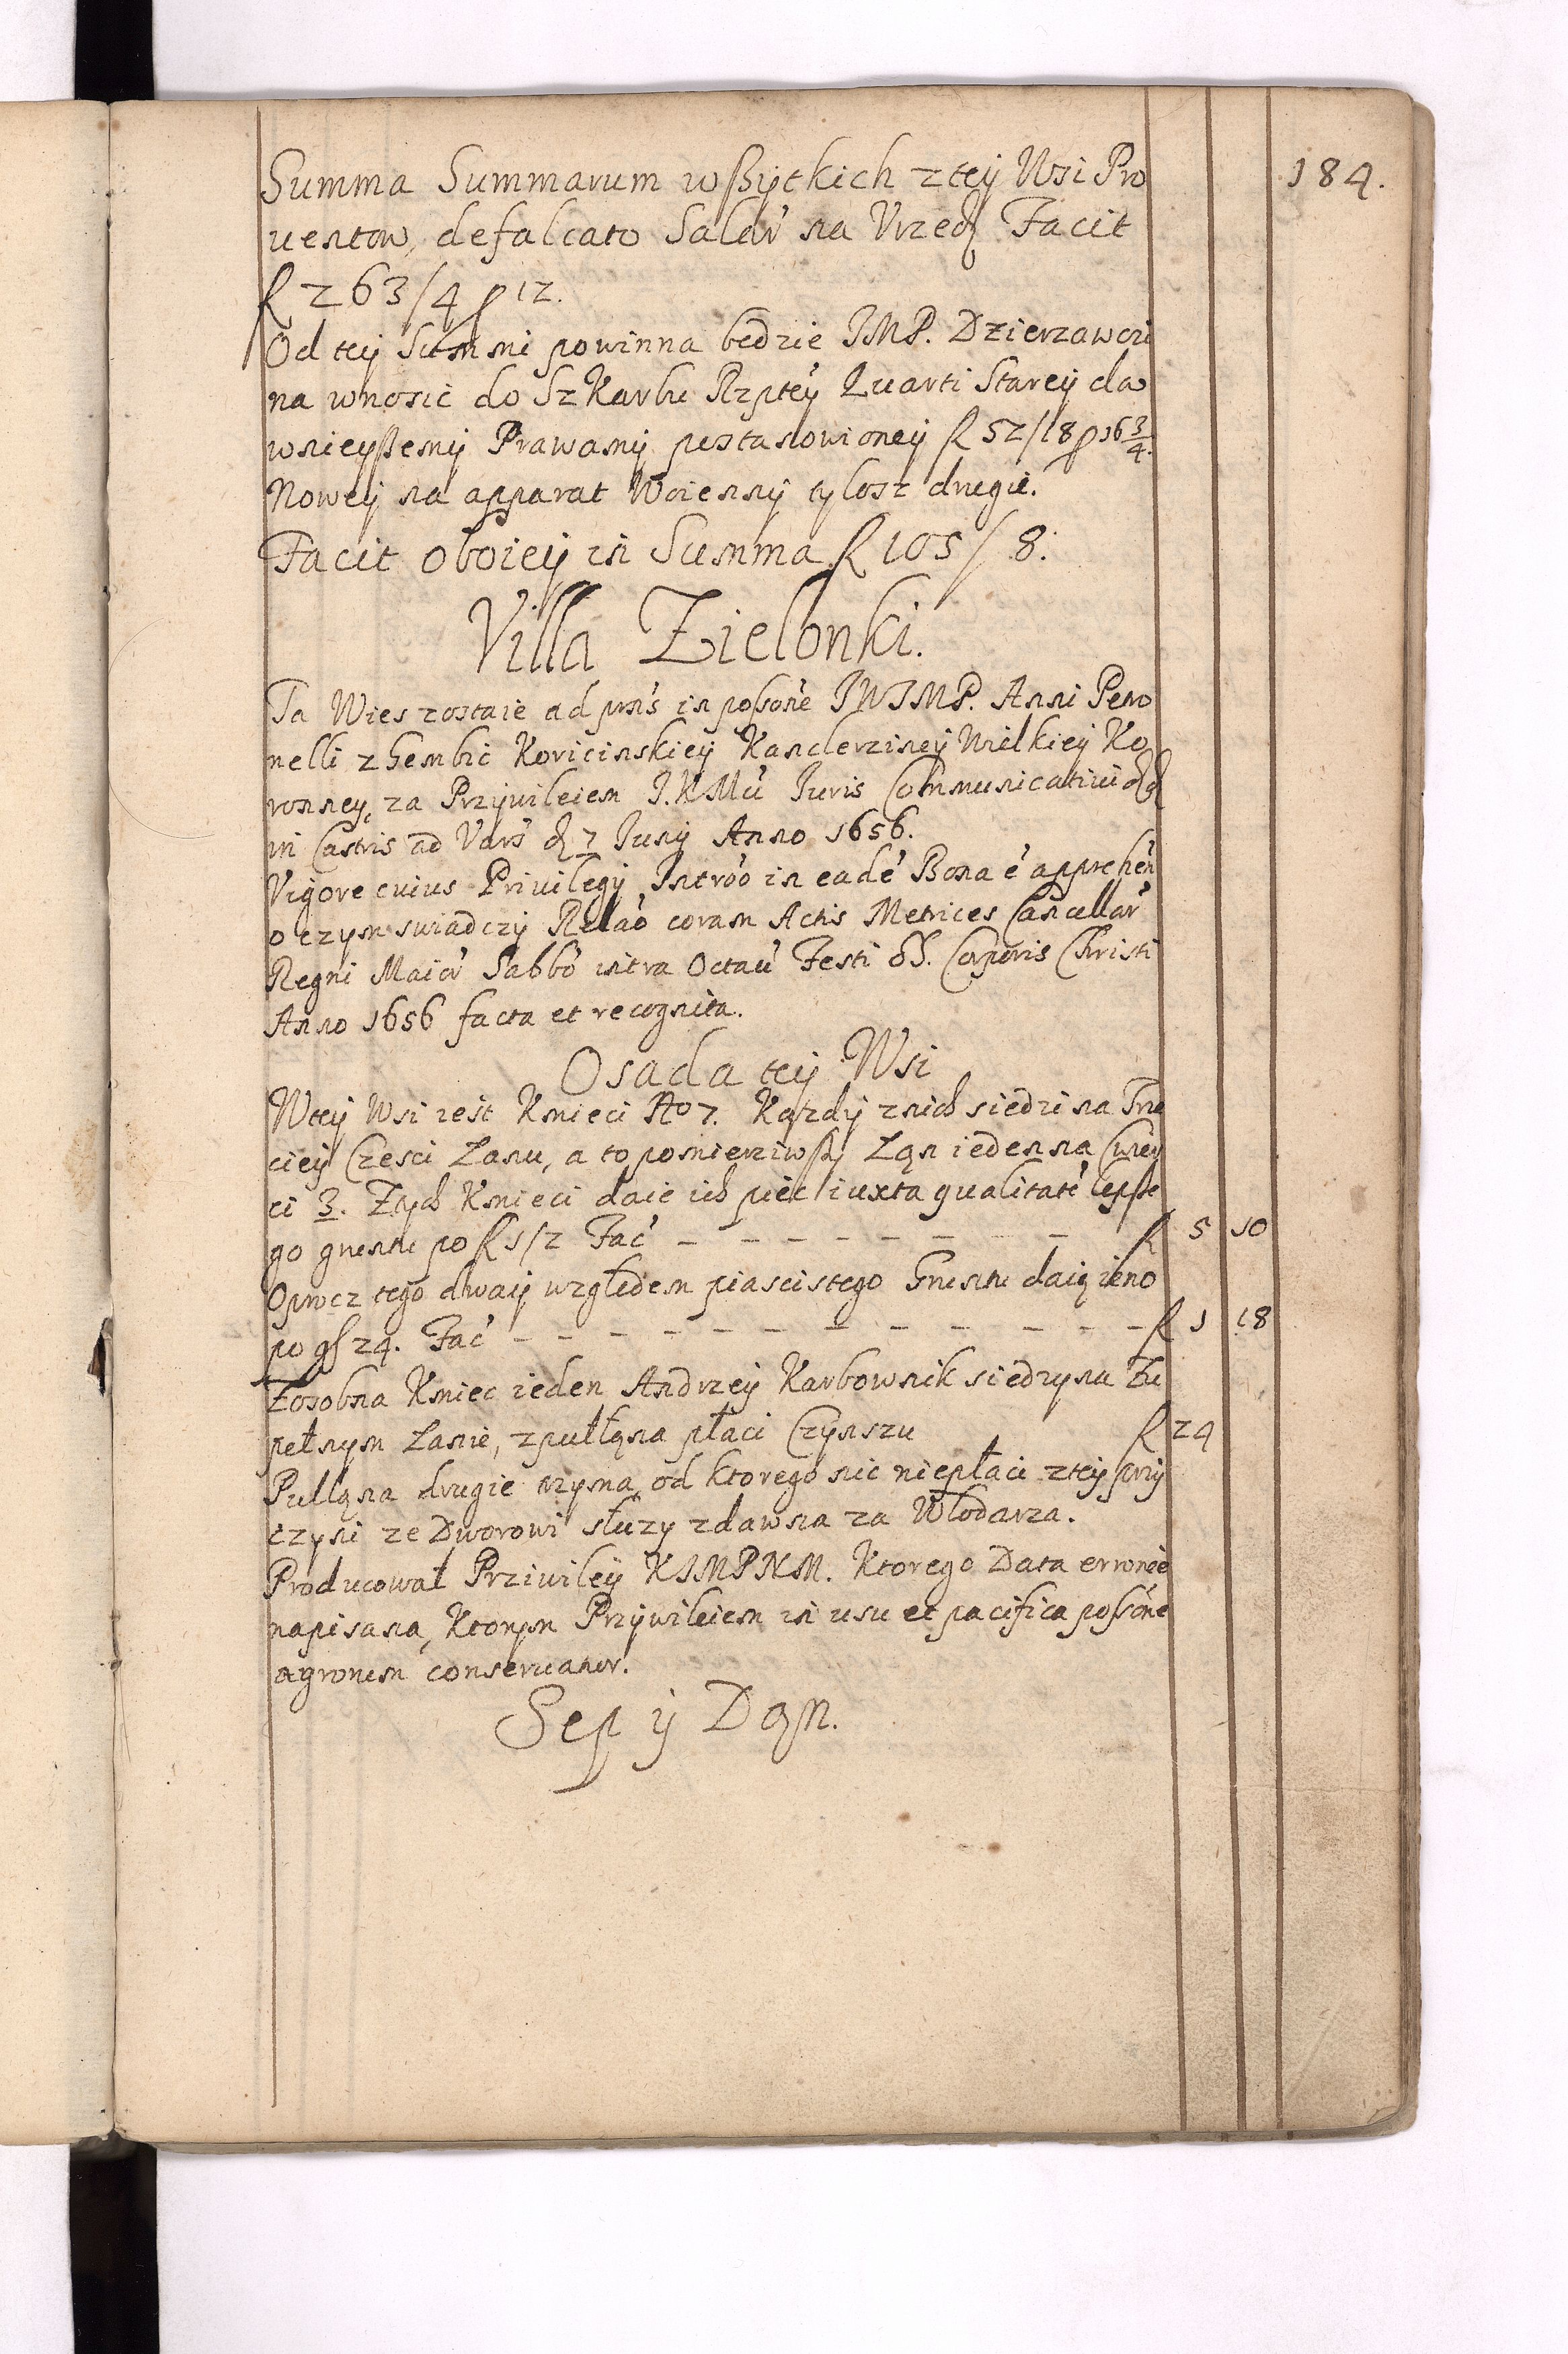 184.
Summa Summarum wßytkich z tey Wsi Pro
uentow, defalcato Salar' na Vrzed Facit
f 263/4 ₰ 12.
Od tey Summi powinna będzie JMP. Dzierzawczi
na wnosic do Szkarbu Rzptey Quarti Starey da
wnieyßemy Prawamy postanowioney f 52/18 ₰ 16 3/4.
Nowey na apparat Woienny tylosz drugie.
Facit oboiey in Summa f 105/8.
Villa Zielonki.
Ta Wies zostaie ad prns in possone JWJMP. Anni Petro
nelli z Gembic Koricinskiey Kanclerziney Wielkiey Ko
ronney, za Przywileiem J.K.Mci Juris Communicatiui
in Castris ad Vars d 7 Juny Anno 1656.
Vigore cuius Privilegy Introo in eade Bona e apprehen
o czym swiadczy Relao coram Actis Metrices Cancellar
Regni Maior Sabbo intra Octau Festi SS. Corporis Christi
Anno 1656 facta et recognita.
Osada tey Wsi
W tey Wsi iest Kmieci No 7. Kazdy z nich siedzi na Trze
ciey Czesci Lanu, a to pomierziwßy Lan ieden na Cwier
ci 3. Z tych Kmieci daie ich piec iuxta qualitate lepße
go gruntu po f 1/2 Fac — — — — — — — f 5 10
Oprocz tego dway względem piascistego Gruntu daią ieno
po gr 24. Fac — — — — — — — — — — — f 1 18
Zosobna Kmiec ieden Andrzey Karbownik siedzy na Zu
pełnym Lanie, z pułłana płaci Czynszu f 24
Pullana drugie trzyma, od ktorego nic niepłaci z tey przy
czyni ze Dworowi słuzy zdawna za Włodarza.
Producował Priwiley KJMPNM. Ktorego Data erronee
napisana, Ktorym Przywileiem in usu et pacifica possone
agrorum conseruatur.
Sep y Dan.